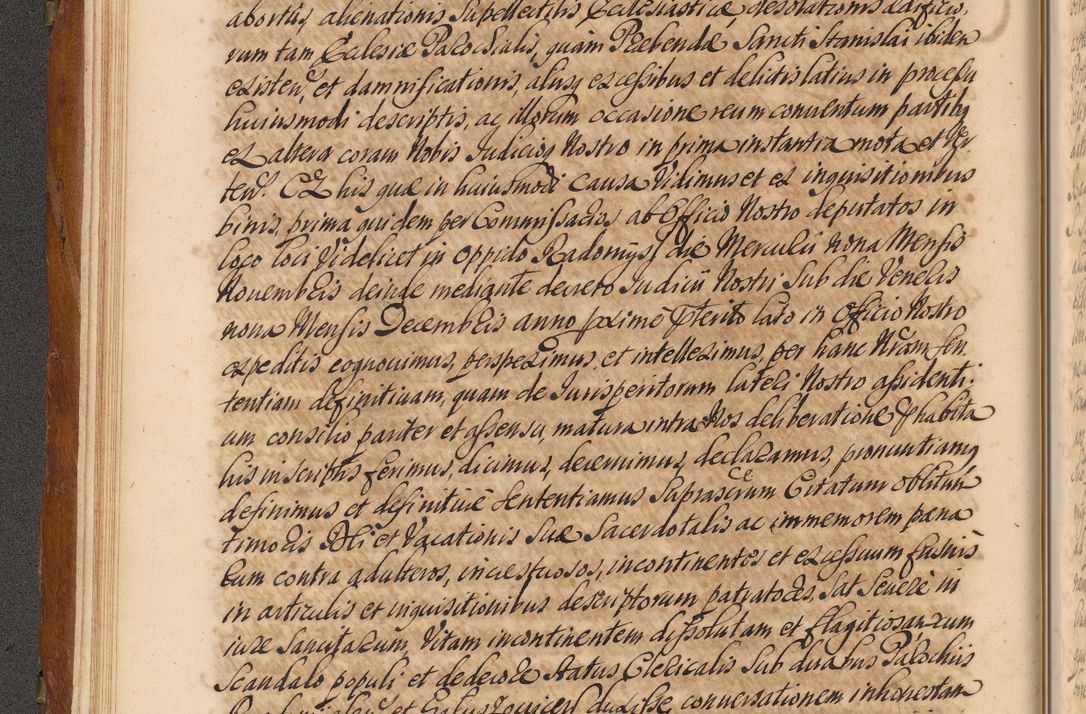 abortus, alienationis Supellectilis Ecclesiasticæ, desolationis ædificio,
rum tam Ecclesiæ Parochialis, quam Præbendæ Sancti Stanislai ibiden
existen, et damnificationis, alusq excessibus et delictis latius in processu
huiusmodi descriptis, ac illorum occasione reum conuentum partibq
ex altera coram Nobis Judicioq Nostro in prima instantia mota et Ver
ten. Ex his quæ in huiusmodi causa Vidimus et ex inquisitionibus
binis, prima quidem per Commissarios ab Officio Nostro deputatos in
loco loci Videlicet in oppido Radomysl die Mercurii nona Mensis
Nouembris deinde mediante decreto Judicii Nostri Sub die Veneris
nona Mensis Decembris anno proxime præterito lato in Officio Nostro
expeditis cognouimus, perspeximus, et intelleximus, per hanc Nram sen,
tentiam definitiuam, quam de Jurisperitorum lateri Nostro assidenti,
um consilio pariter et assensu, matura intra Nos deliberatione præhabita
his in scriptis ferimus, dicimus, decernimus, declaramus, pronuntiamq
definimus et definitiue Sententiamus Suprascrum Citatum oblitum
timoris Dei et Vacationis Suæ Sacerdotalis ac immemorem pæna
rum contra adulteros, incestuosos, incontinentes et excessuum
in articulis et inquisitionibus descriptorum patratores, Sat Seuere in
iure Sancitarum, Vitam incontinentem dissolutam et flagitiosam cum
Scandalo populi et dedecore Status Clericalis Sub duabus Parochiis
et conuersationem inhonestam